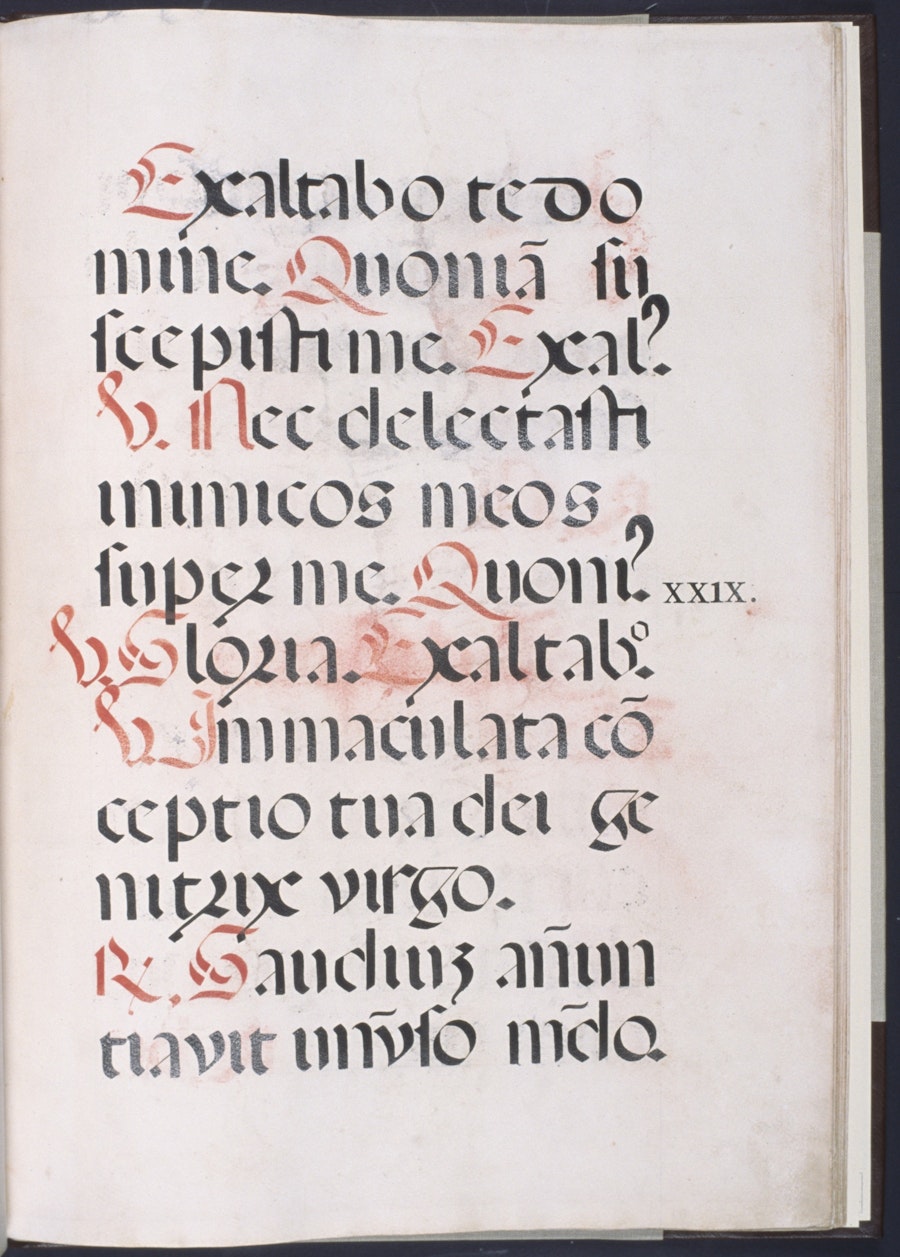 Exaltabo te do
mine. Quoniã su
scepisti me. Exal?.
V. Nec delectasti
inimicos meos
super me. Quoni?.
XXIX.
V. Gloria. Exaltabº.
V. Immaculata cõ
ceptio tua dei ge
nitrix virgo.
R. Gaudiuʒ añun
tiavit uniṽso mũdo.